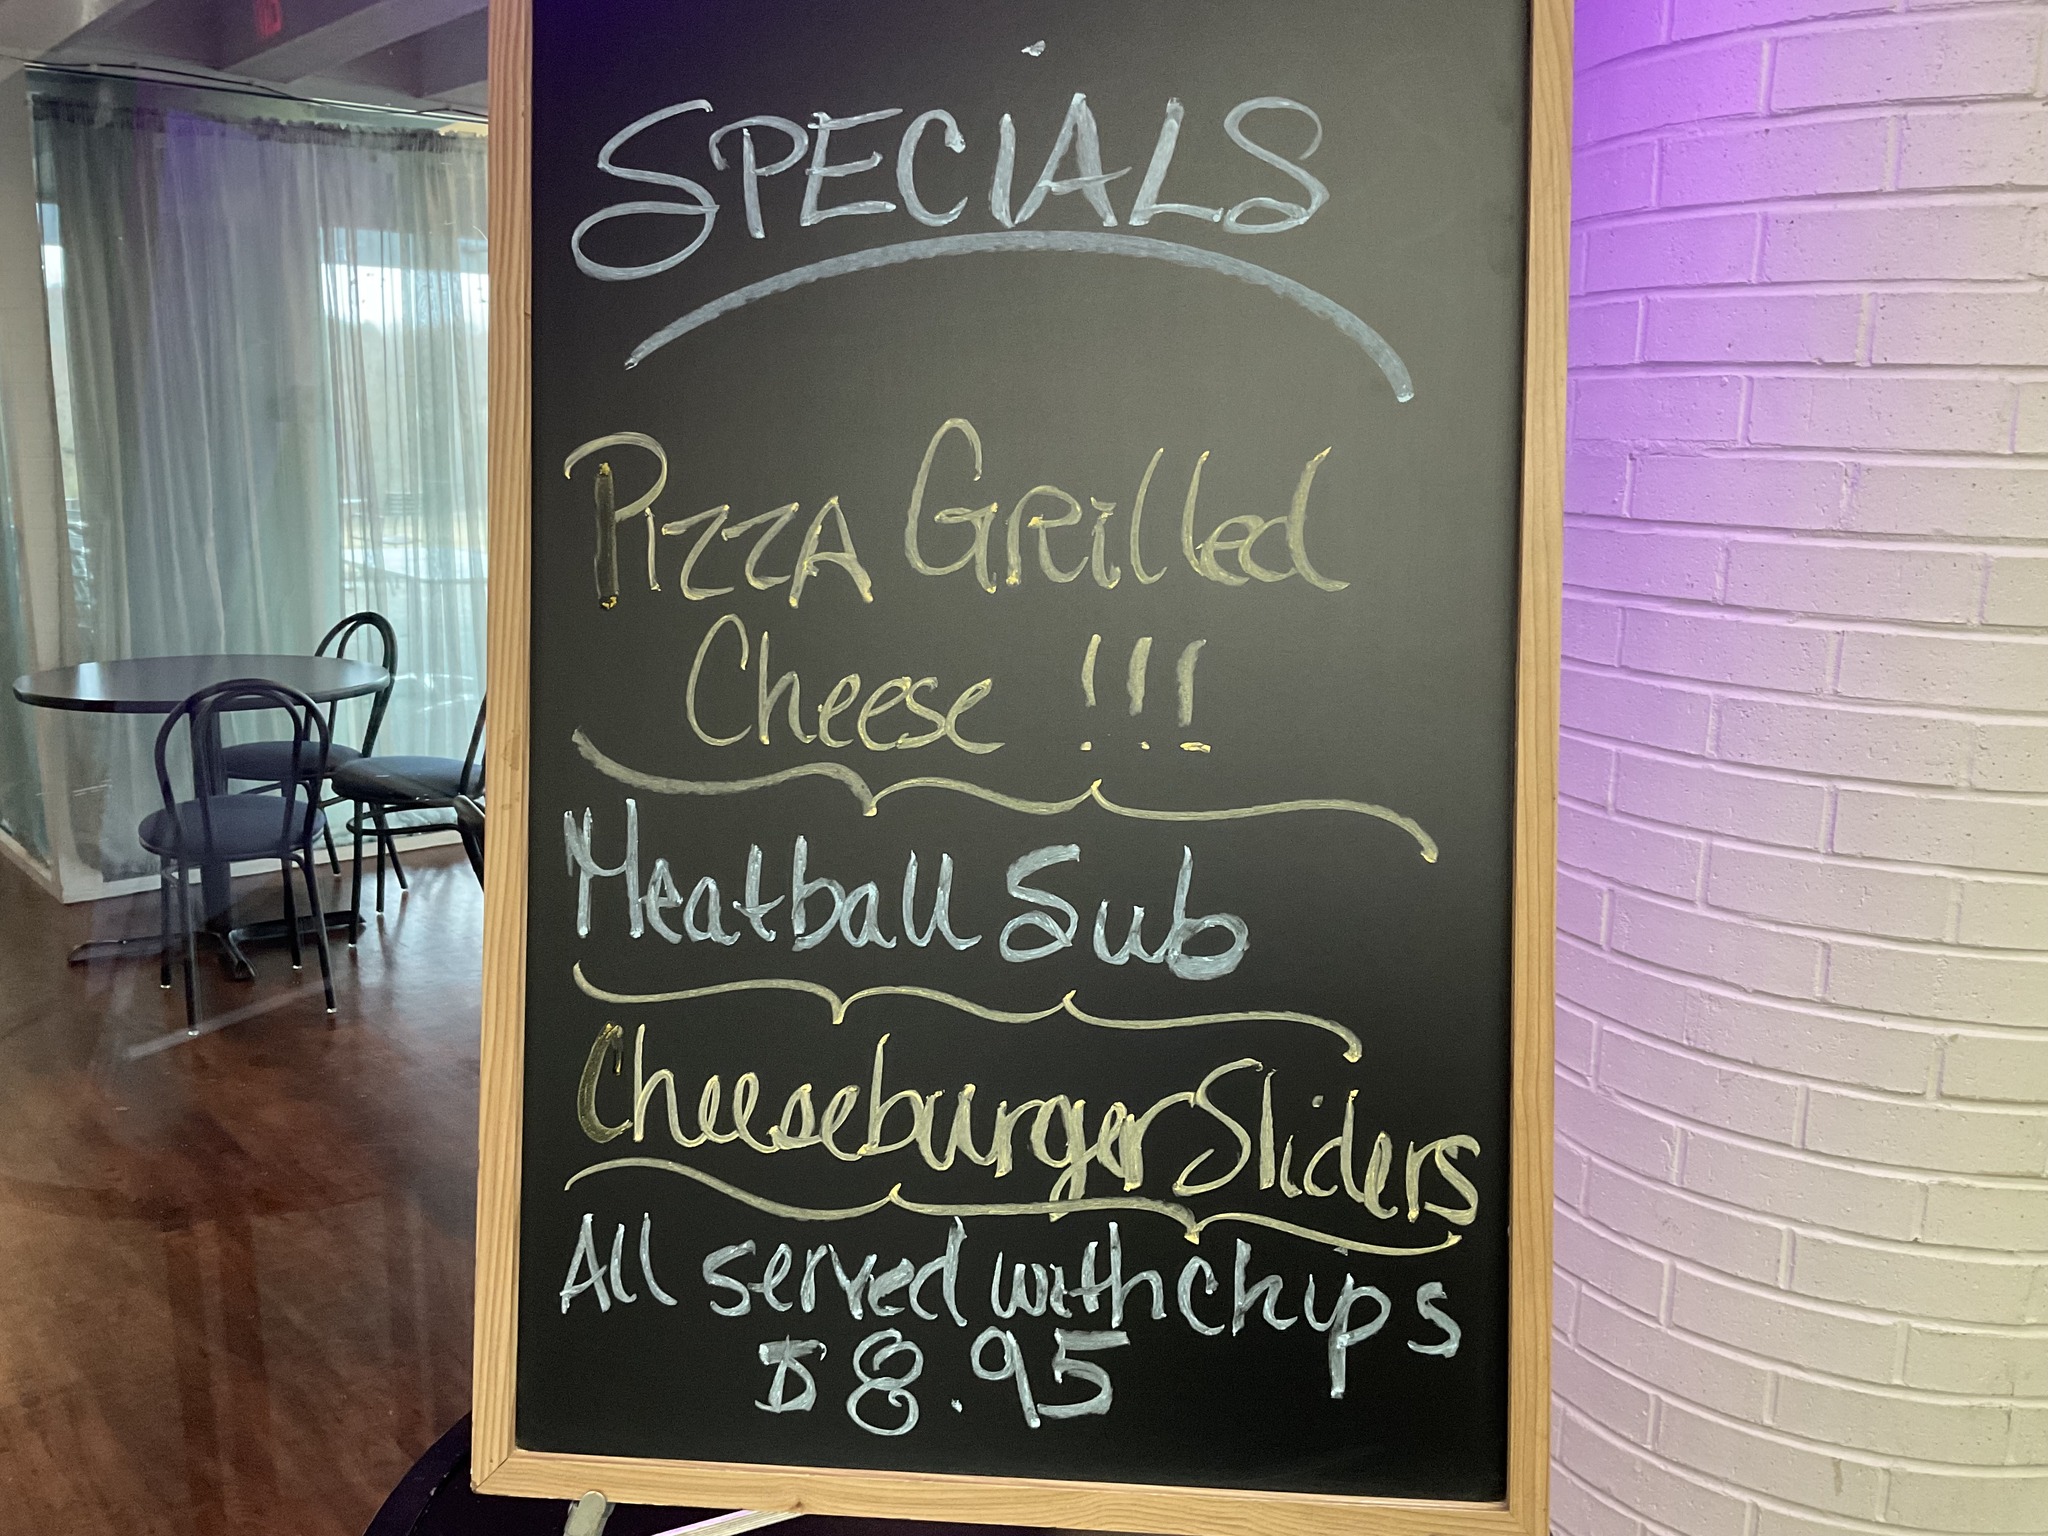 SPECIALS
PIZZA GRilled
Cheese !!!
Meatball Sub
Cheeseburger Sliders
All served with chips
$8.95